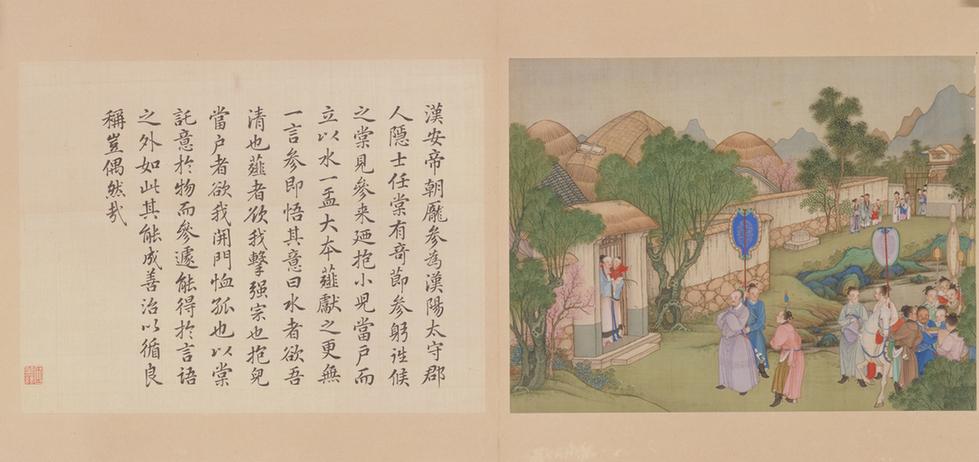 漢安帝朝龐參為漢陽太守郡
人隱士任棠有奇節參躬詣候
之棠見參来廼抱小兒當戶而
立以水一盂大本薤獻之更無
一言參即悟其意曰水者欲吾
清也薤者欲我擊强宗也抱兒
當戶者欲我開門恤孤也以棠
託意於物而參遽能得於言語
之外如此其能成善治以循良
稱豈偶然哉